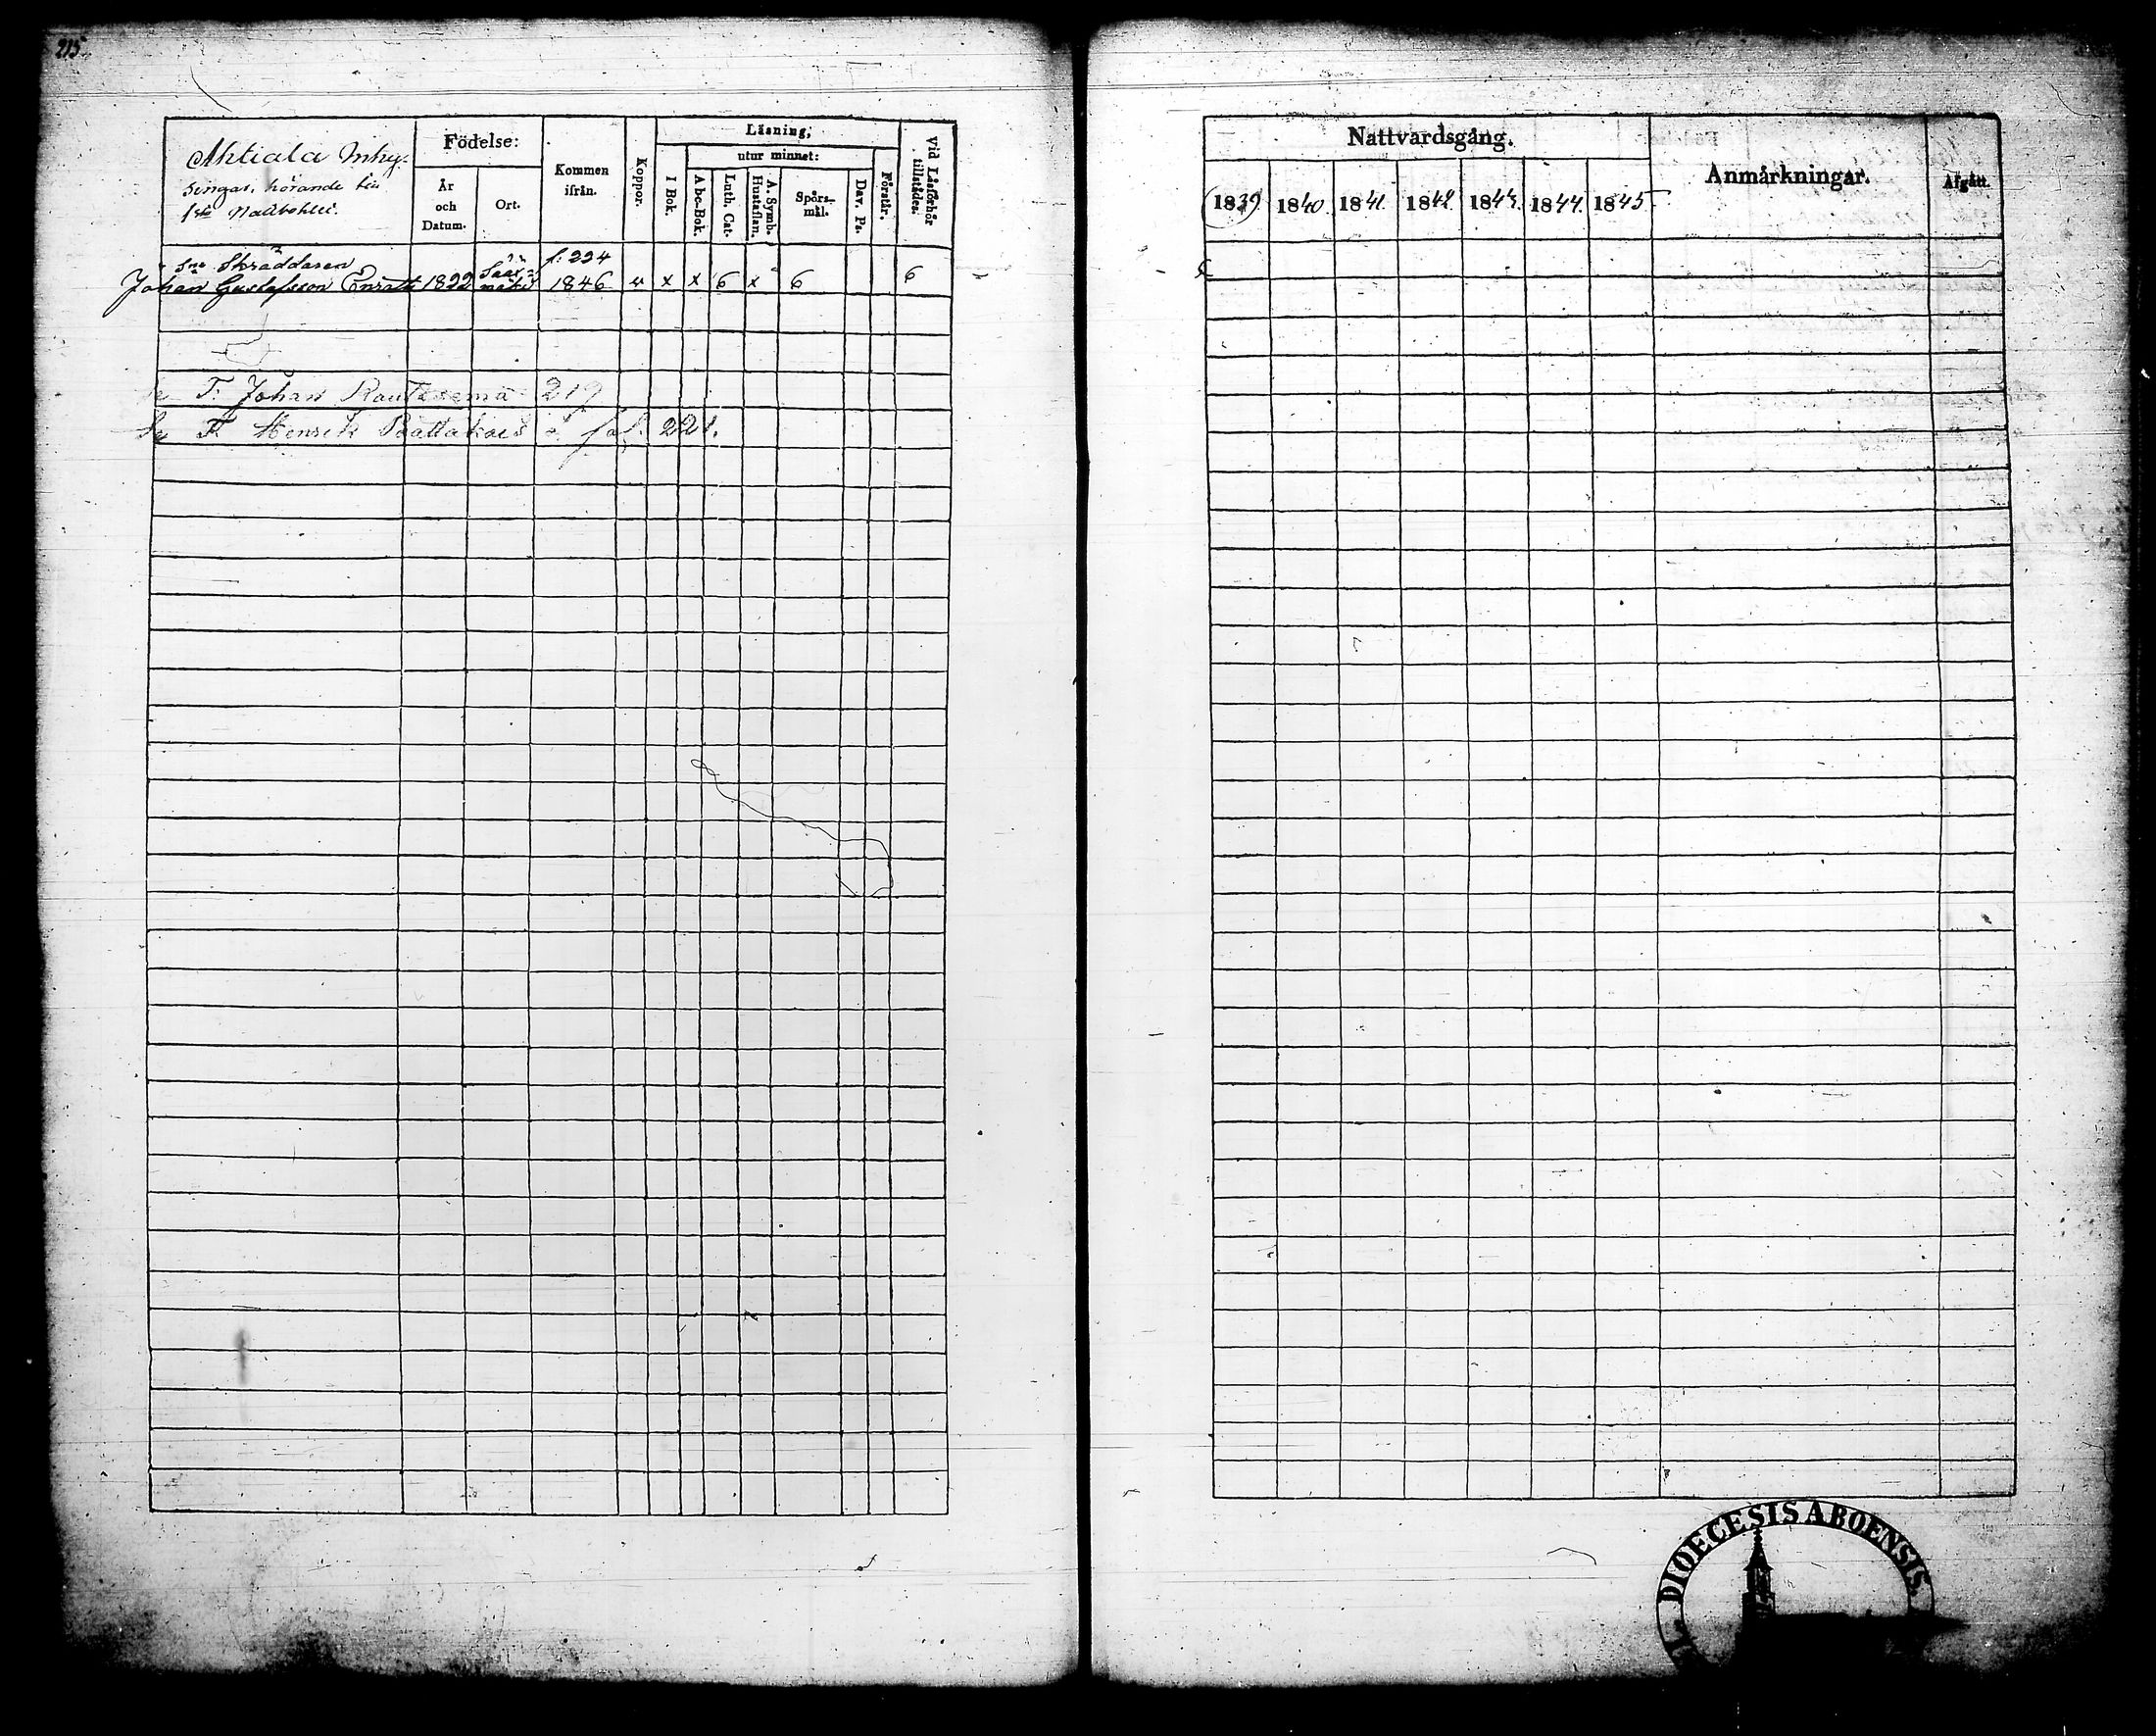 215
Ahtiala Inhy-
singar, hörande till
Födelse:
År och Datum.
Ort.
Kommen ifrån.
Koppor.
Läsning,
utur minnet:
I Bok.
A bc-Bok.
Luth. Cat.
A. Symb. Hustaflan.
Spörs-mål.
Dav. Ps.
Förstår.
Vid Läsförhör tillstädes.
Skräddaren f. 224
Johan Gustafsson Enrath 1822 1846 x x 6 x 6 6
Se T. Johan 219
Se Henrik fol. 221.
Nattvardsgång.
1839 1840. 1841. 1842 1843. 1844. 1845
Anmärkningar.
Afgått.
DIOECESIS ABOENSIS.